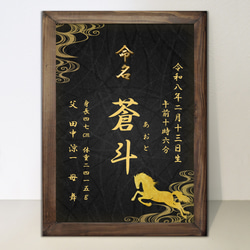 令和八年二月十三日生
午前十時六分
命名
蒼斗
あおと
身長四七㎝ 体重二四一五g
父 田中涼一 母 舞